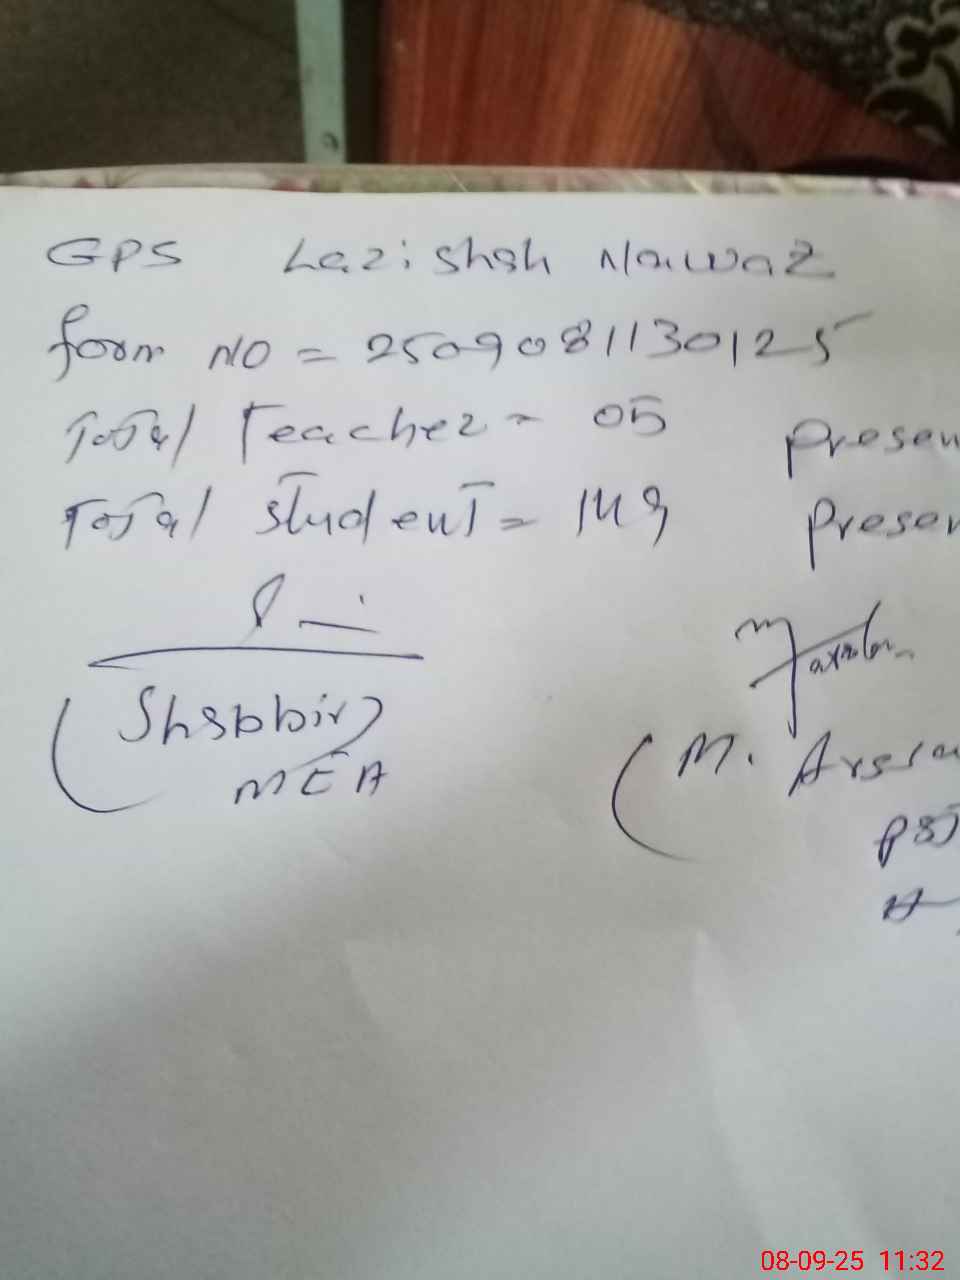 GPS Lazishah Nawaz
form NO = 2509081130125
Total Teacher = 05 presen
Total student = 149 presen
(Shabbir)
MEA
(M. Arssa
PST
08-09-25 11:32